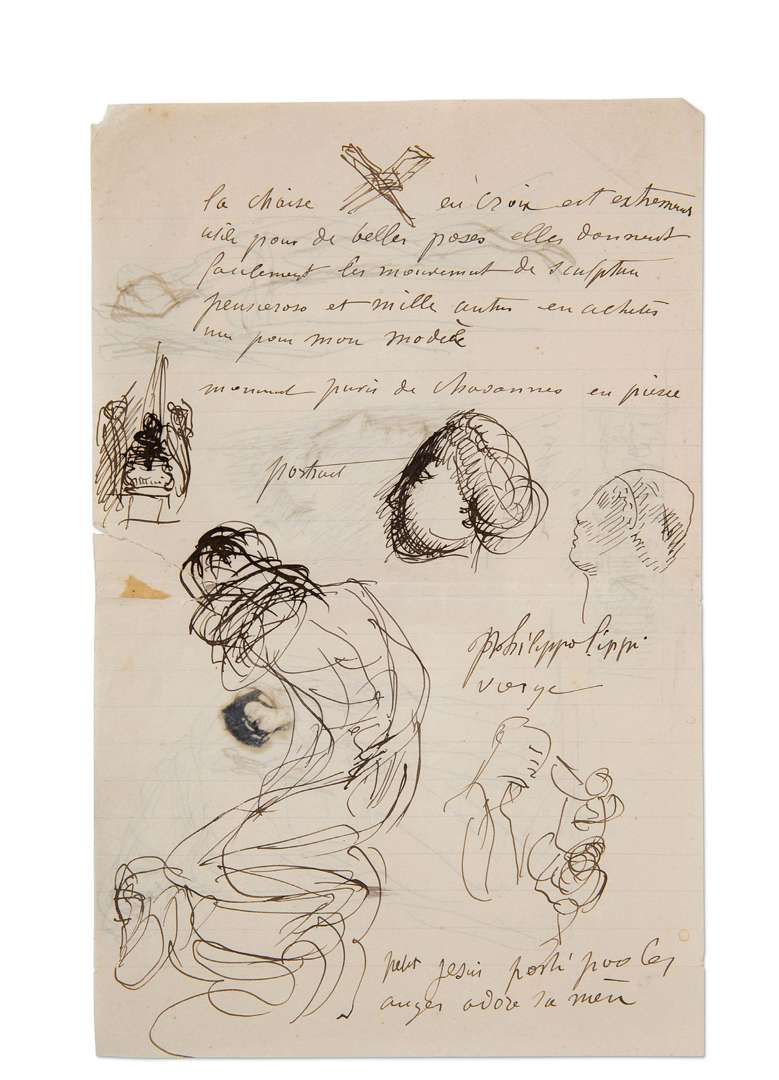 la chaise en croix est extremem
utile pour de belles poses elles donnent
seulement les mouvement de sculptur
pensieroso et mille autres en achetés
une pour mon modèle
monument puvis de chavannes en pierre
portrait
philippo lippi
vierge
petit jesus porté par les
anges adore sa mère